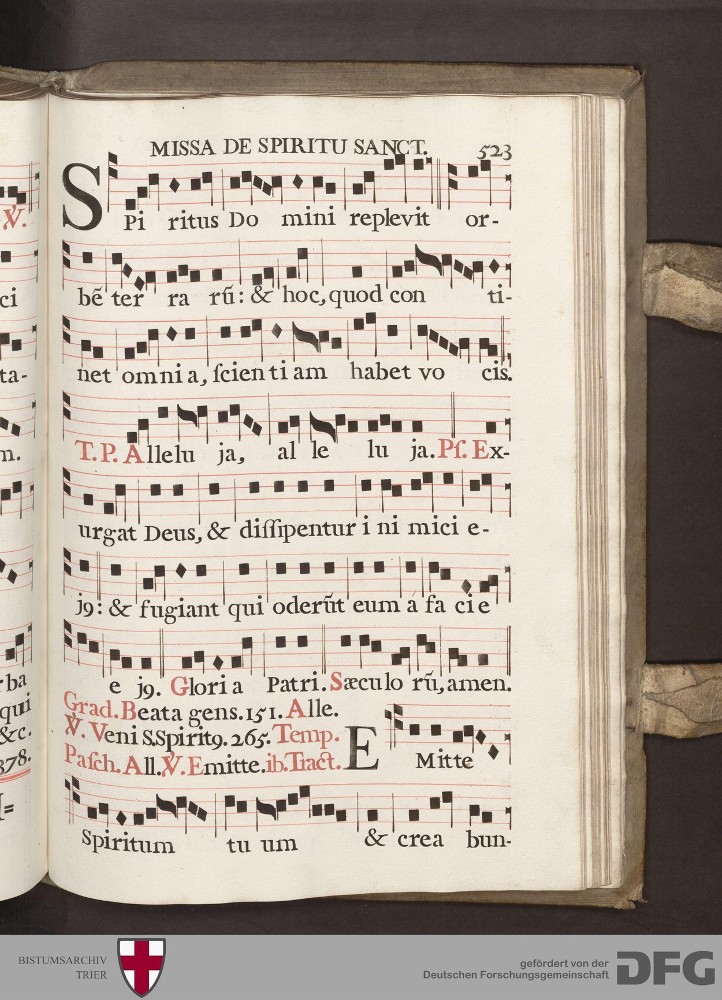 MISSA DE SPIRITU SANCT. 523
SPi ritus Do mini replevit or-
bē ter ra rũ: & hoc, quod con ti-
net omnia, ſcientiam habet vo cis.
T. P. Allelu ja, al le lu ja. Pſ. Ex-
urgat Deus, & diſſipentur i ni mici e-
j9: & fugiant qui oderũt eum á fa cie
e j9. Gloria Patri. Sæculo rũ, amen.
Grad. Beata gens. 151. Alle.
℣. Veni S. Spirit9. 265. Temp.
Paſch. All. ℣. Emitte. ib. Tract.
EMitte
Spiritum tu um & crea bun-
℣.
ci
ta-
m.
rba
qui
&c.
378.
BISTUMSARCHIV
TRIER
gefördert von der
Deutschen Forschungsgemeinschaft
DFG